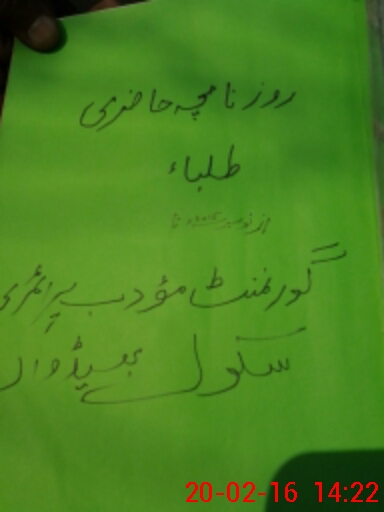 روزنامچہ حاضری
طلباء
گورنمنٹ مؤدب پرائمری
سکول بھیڈوال
20-02-16 14:22